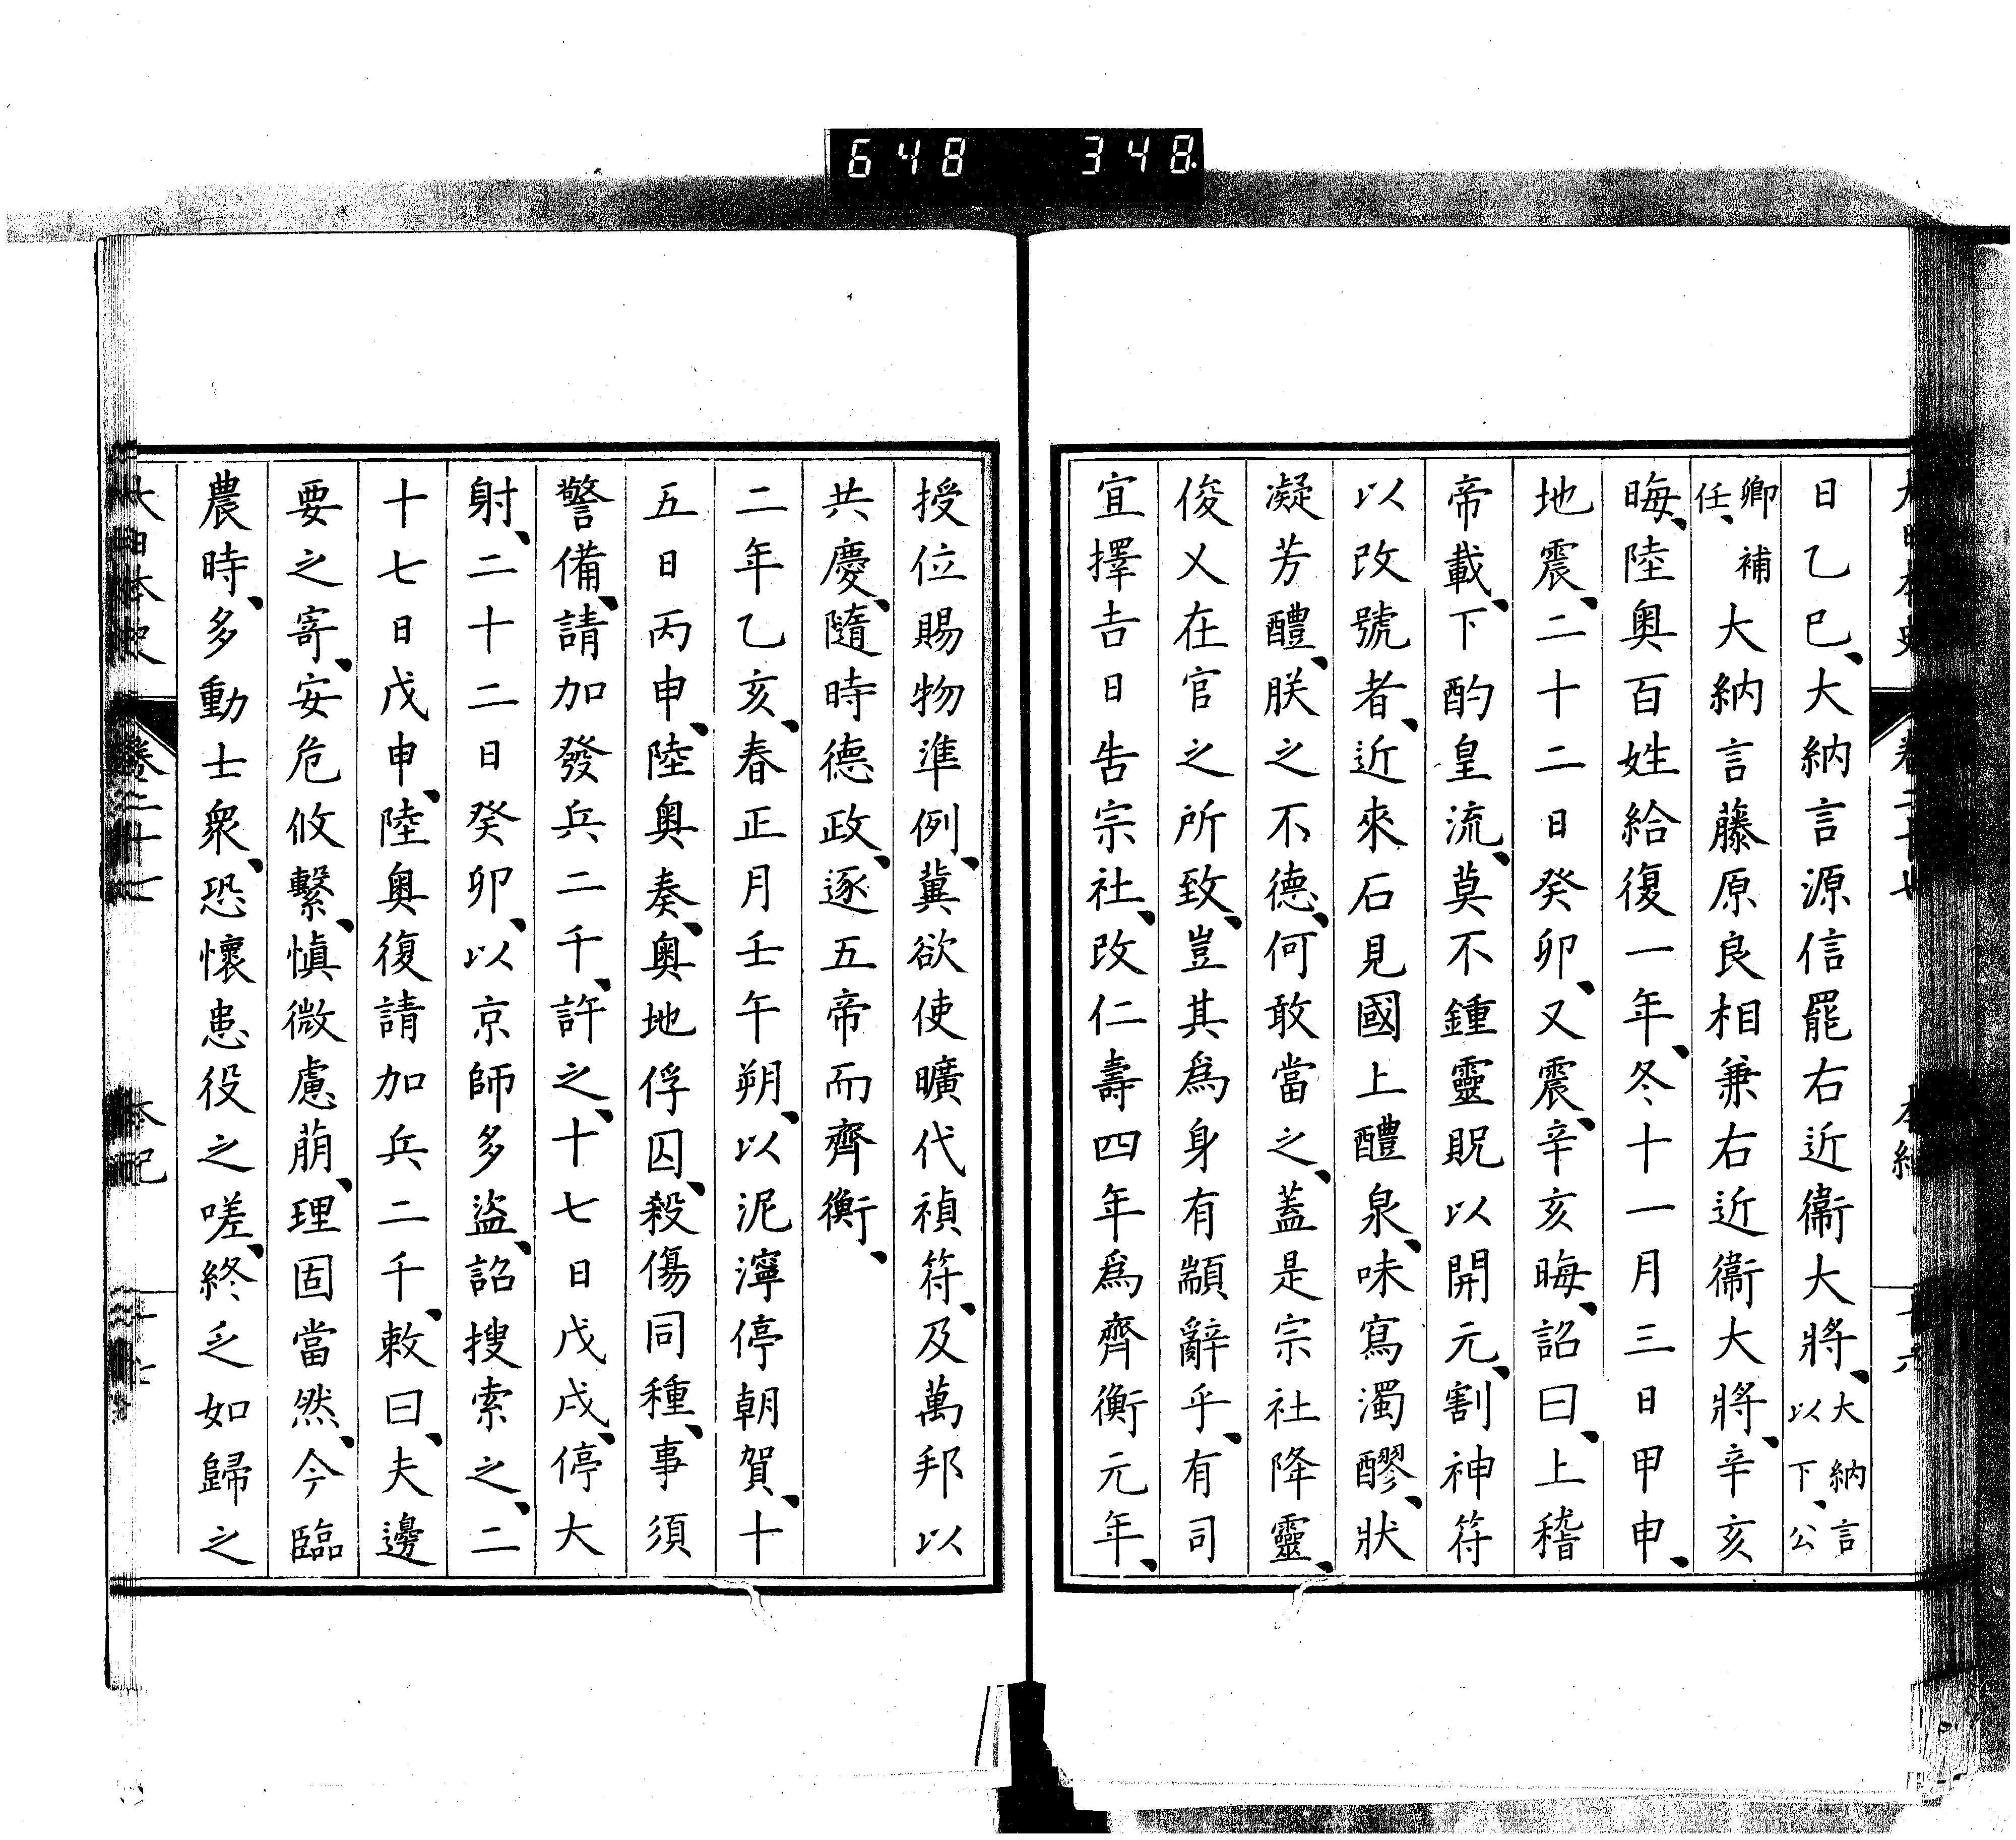 648 348
大日本史 卷三十七 本紀 十六
日乙巳、大納言源信罷右近衞大將、大納言以下、公
卿補任、大納言藤原良相兼右近衞大將、辛亥
晦、陸奧百姓給復一年、冬十一月三日甲申、
地震、二十二日癸卯、又震、辛亥晦、詔曰、上稽
帝載、下酌皇流、莫不鍾靈貺以開元、割神符
以改號者、近來石見國上醴泉、味寫濁醪、狀
凝芳醴、朕之不德、何敢當之、蓋是宗社降靈、
俊乂在官之所致、豈其爲身有顓辭乎、有司
宜擇吉日告宗社、改仁壽四年爲齊衡元年、
授位賜物準例、冀欲使曠代禎符、及萬邦以
共慶、隨時德政、逐五帝而齊衡、
二年乙亥、春正月壬午朔、以泥濘停朝賀、十
五日丙申、陸奧奏、奧地俘囚、殺傷同種、事須
警備、請加發兵二千、許之、十七日戊戌、停大
射、二十二日癸卯、以京師多盜、詔搜索之、二
十七日戊申、陸奧復請加兵二千、敕曰、夫邊
要之寄、安危攸繫、愼微慮萠、理固當然、今臨
農時、多動士衆、恐懷患役之嗟、終乏如歸之
大日本史 卷三十七 本紀 十七